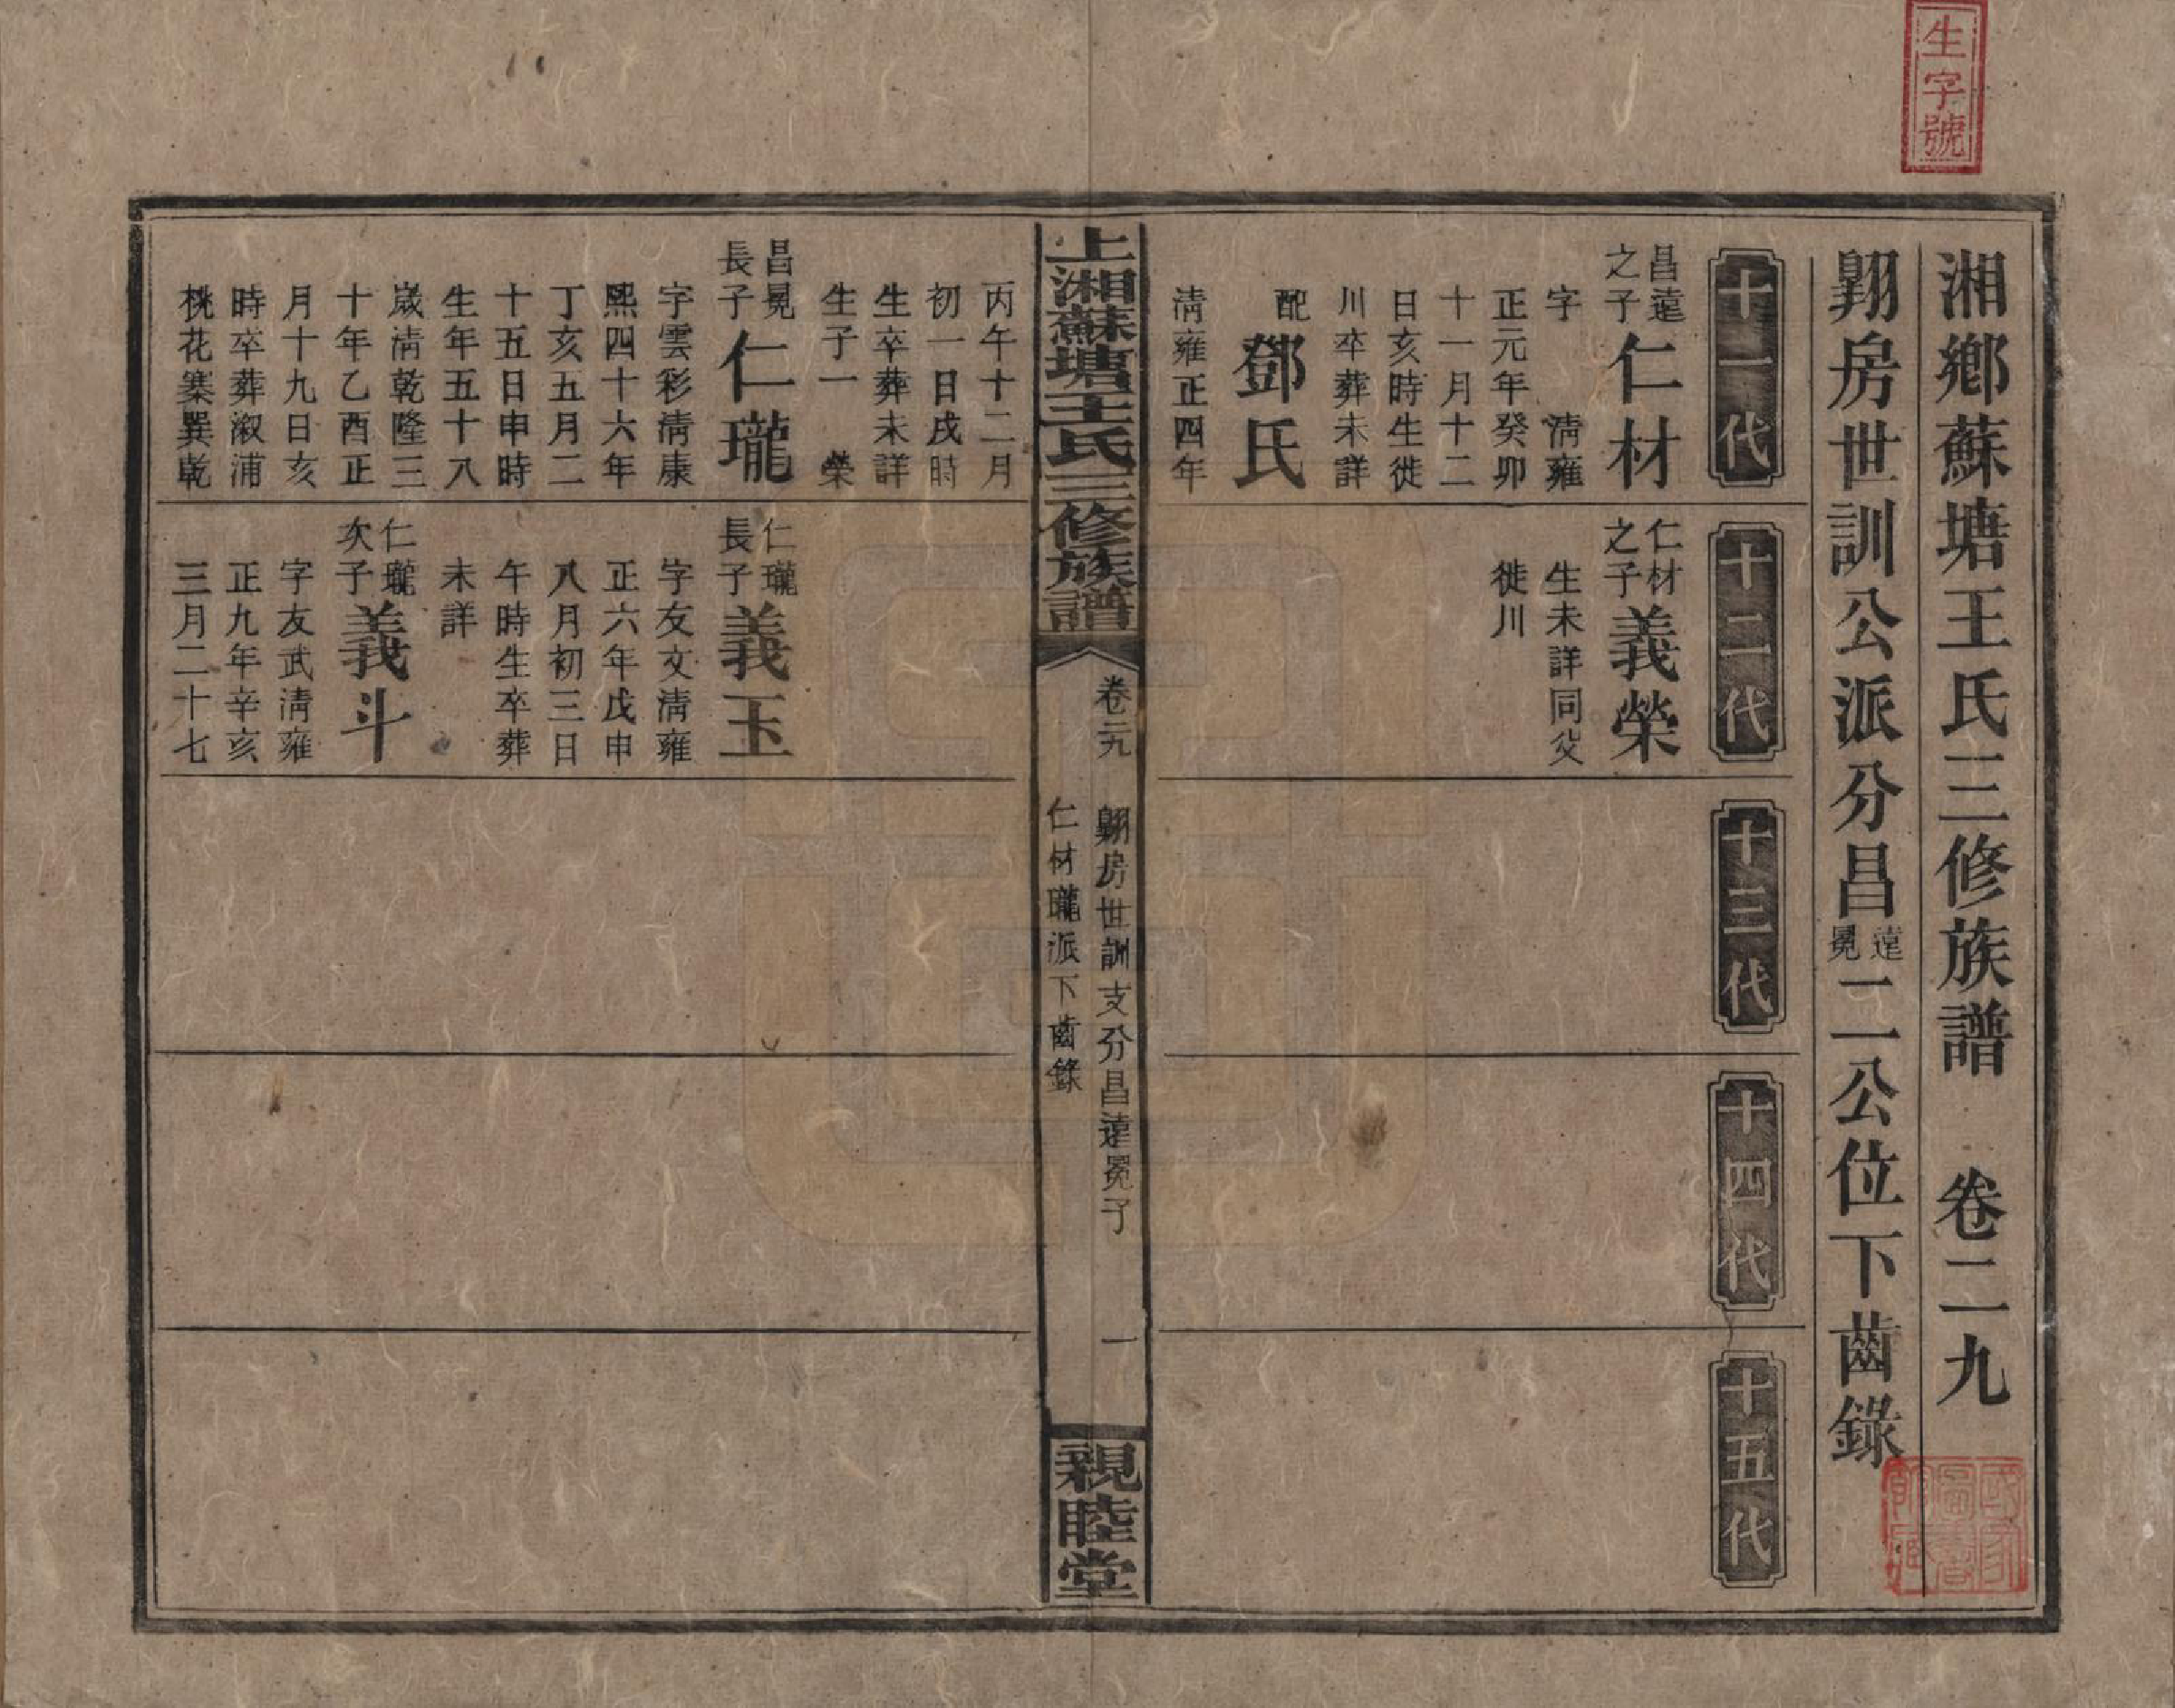 生字號
湘鄉蘇塘王氏三修族譜 卷二九
翺房世訓公派分昌遠冕二公位下齒錄
十一代
昌遠之子 仁材
字 清雍
正元年癸卯
十一月十二
日亥時生徙
川卒葬未詳
配 鄧氏
清雍正四年
十二代
仁材之子 義榮
生未詳同父
徙川
十三代
十四代
十五代
上湘蘇塘王氏三修族譜
卷二九
翺房世訓支分昌遠冕子
仁材瓏派下齒錄
一
親睦堂
丙午十二月
初一日戌時
生卒葬未詳
生子一 榮
昌冕長子 仁瓏
字雲彩清康
熙四十六年
丁亥五月二
十五日申時
生年五十八
歲清乾隆三
十年乙酉正
月十九日亥
時卒葬溆浦
桃花寨巽乾
仁瓏長子 義玉
字友文清雍
正六年戊申
八月初三日
午時生卒葬
未詳
仁瓏次子 義斗
字友武清雍
正九年辛亥
三月二十七